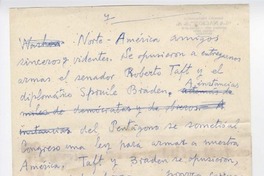 y
Norte-América amigos
sinceros y videntes. Se opusieron a entregarnos
armas el senador Roberto Taft y el
diplomático Spruile Braden. A instancias
miles de demócratas y de obreros. A
instancias del Pentágono se sometió al
Congreso una ley para armar a nuestra
América. Taft y Braden se opusieron,